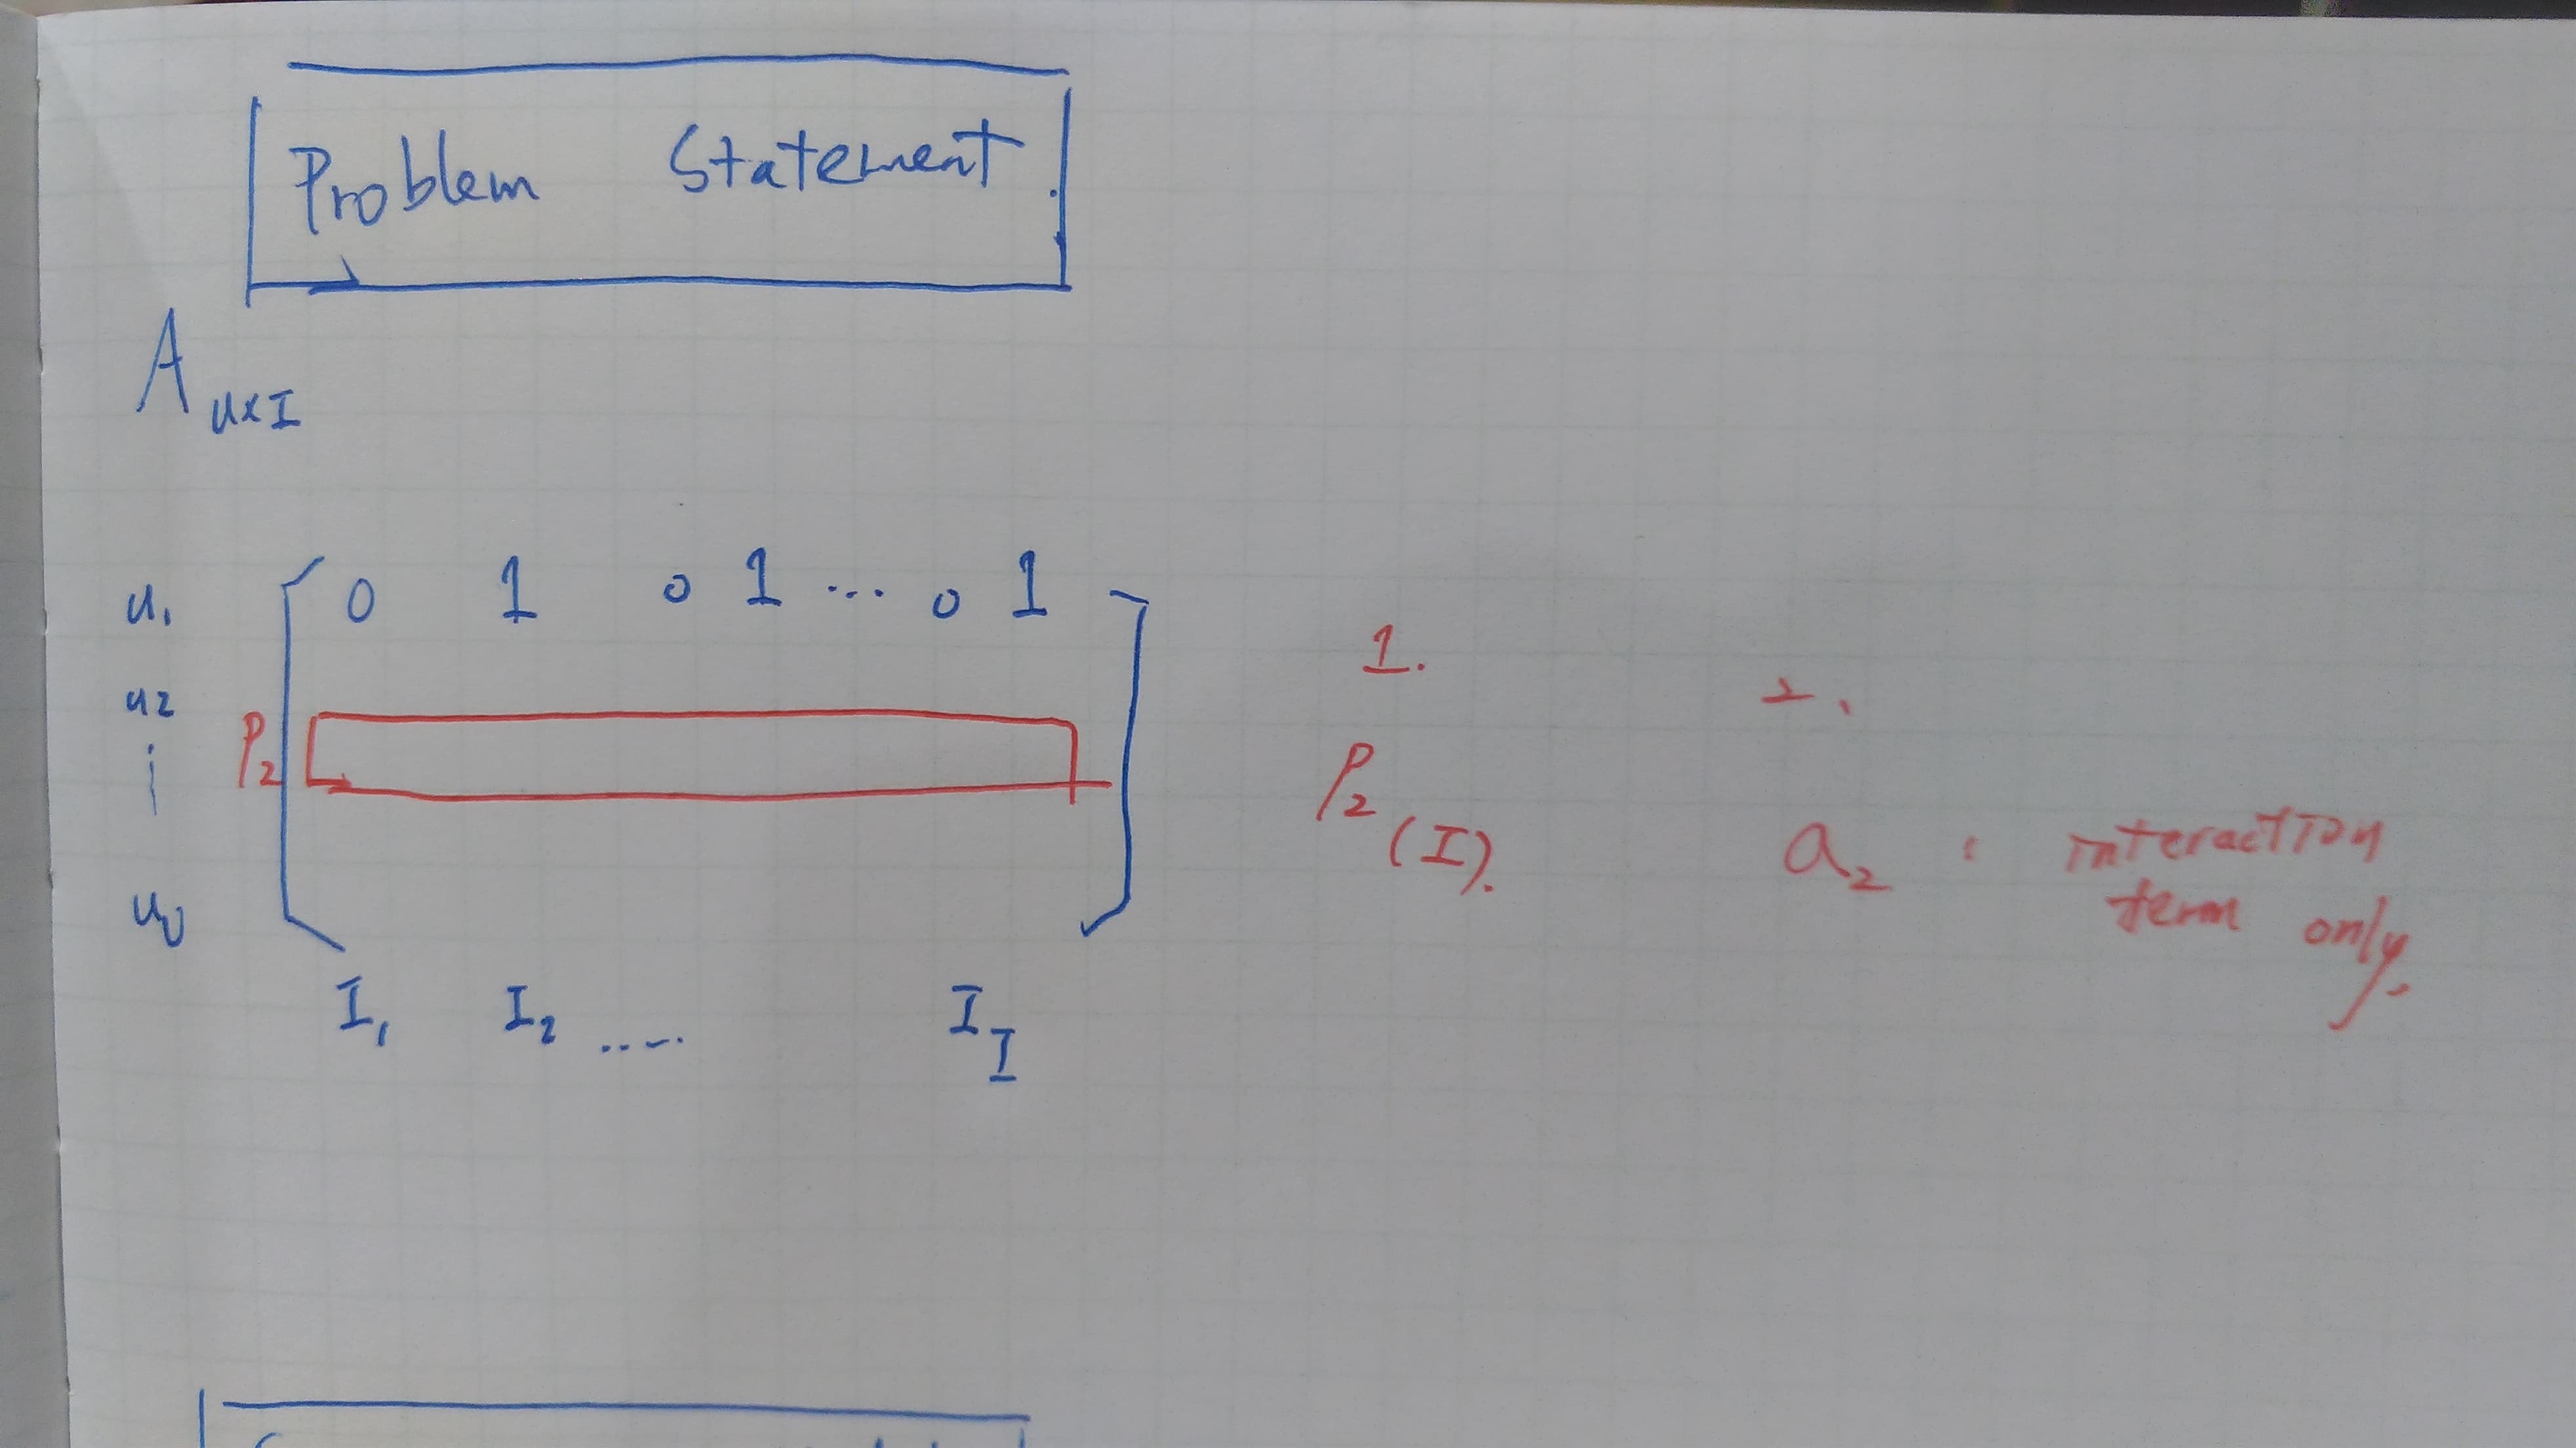 Problem Statement.
A U×I
u1 0 1 0 1 ... 0 1
u2
P2
uU
I1 I2 ..... II
1.
P2 (I).
2.
a2 : interaction
term only.